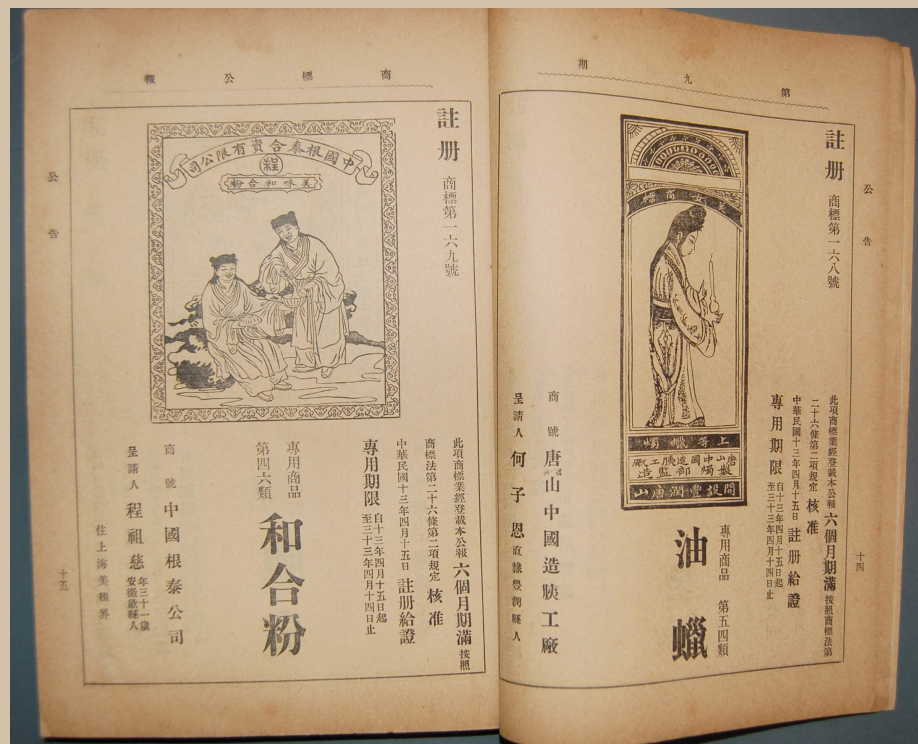 第九期
公告
十四
註册 商標第一六八號
此項商標業經登載本公報六個月期滿按照商標法第
二十六條第二項規定核准
中華民國十三年四月十五日註册給證
專用期限 自十三年四月十五日起
至三十三年四月十四日止
美女商標
上等蠟燭
唐山中國造胰工廠
製燭部監造
開設豐潤唐山
專用商品 第五四類
油蠟
商號 唐山中國造胰工廠
呈請人 何子恩 直隸豐潤縣人
商標公報
公告
十五
註册 商標第一六九號
中國根泰合資有限公司
程
美味和合粉
此項商標業經登載本公報六個月期滿按照
商標法第二十六條第二項規定核准
中華民國十三年四月十五日註册給證
專用期限 自十三年四月十五日起
至三十三年四月十四日止
專用商品
第四六類
和合粉
商號 中國根泰公司
呈請人 程祖慈 年三十一歲
安徽歙縣人
住上海美租界